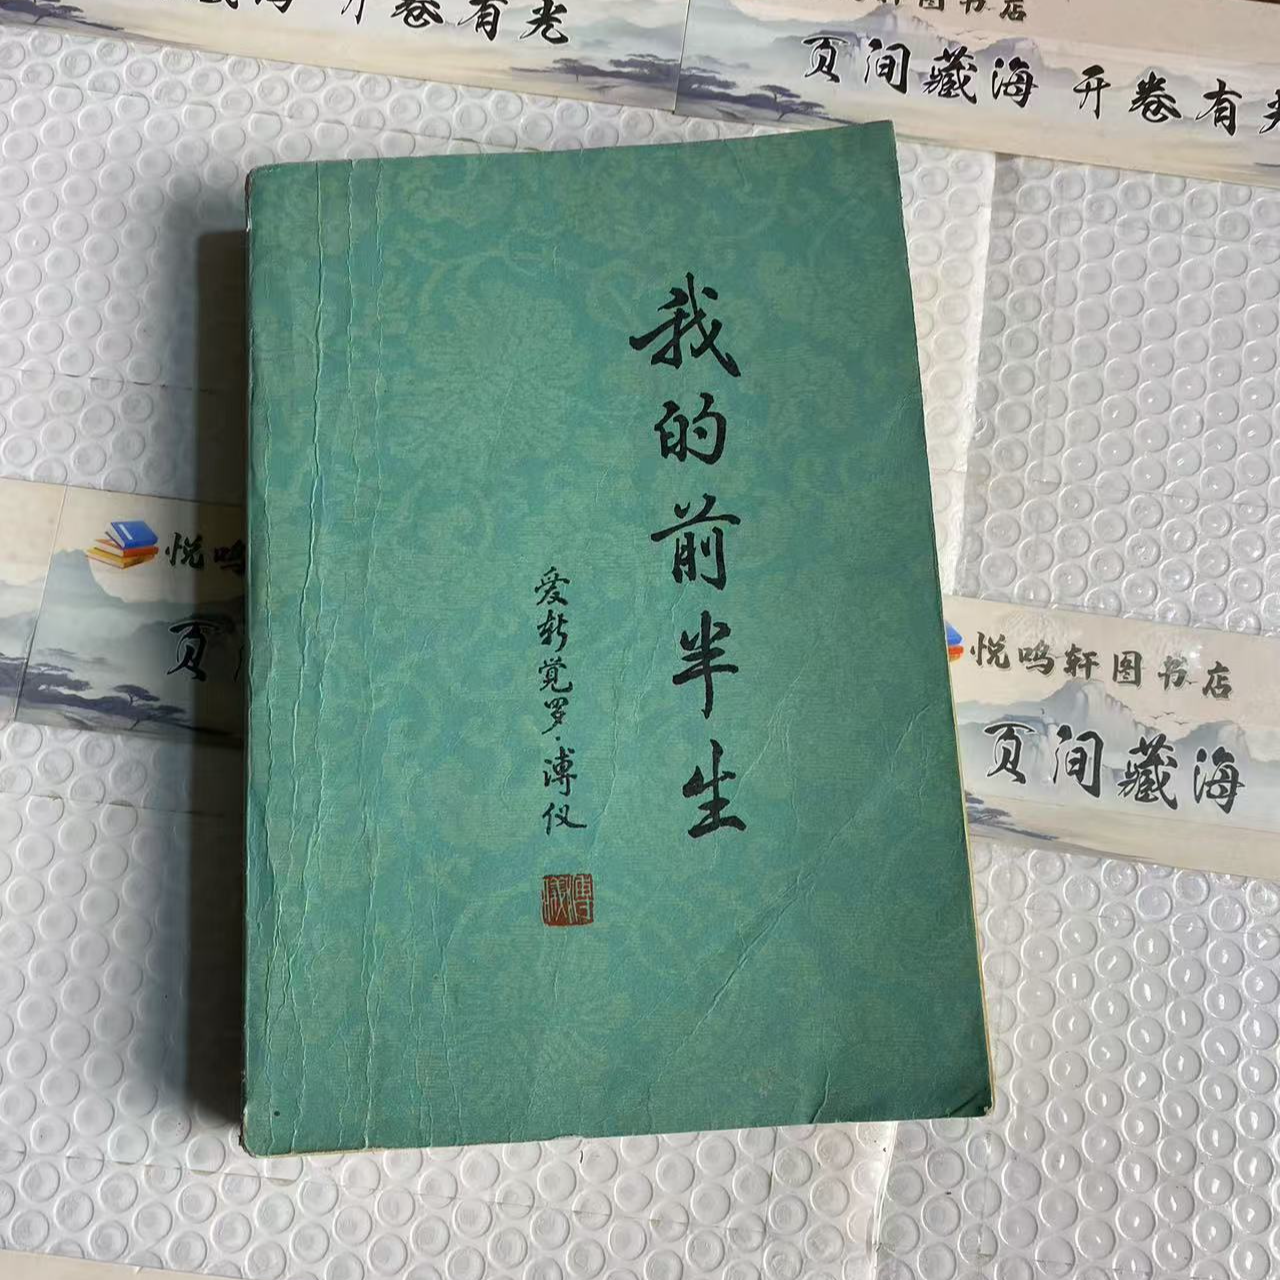 开卷有光
图书店
页间藏海 开卷有
我的前半生
爱新觉罗·溥仪
悦鸣
页
悦鸣轩图书店
页间藏海